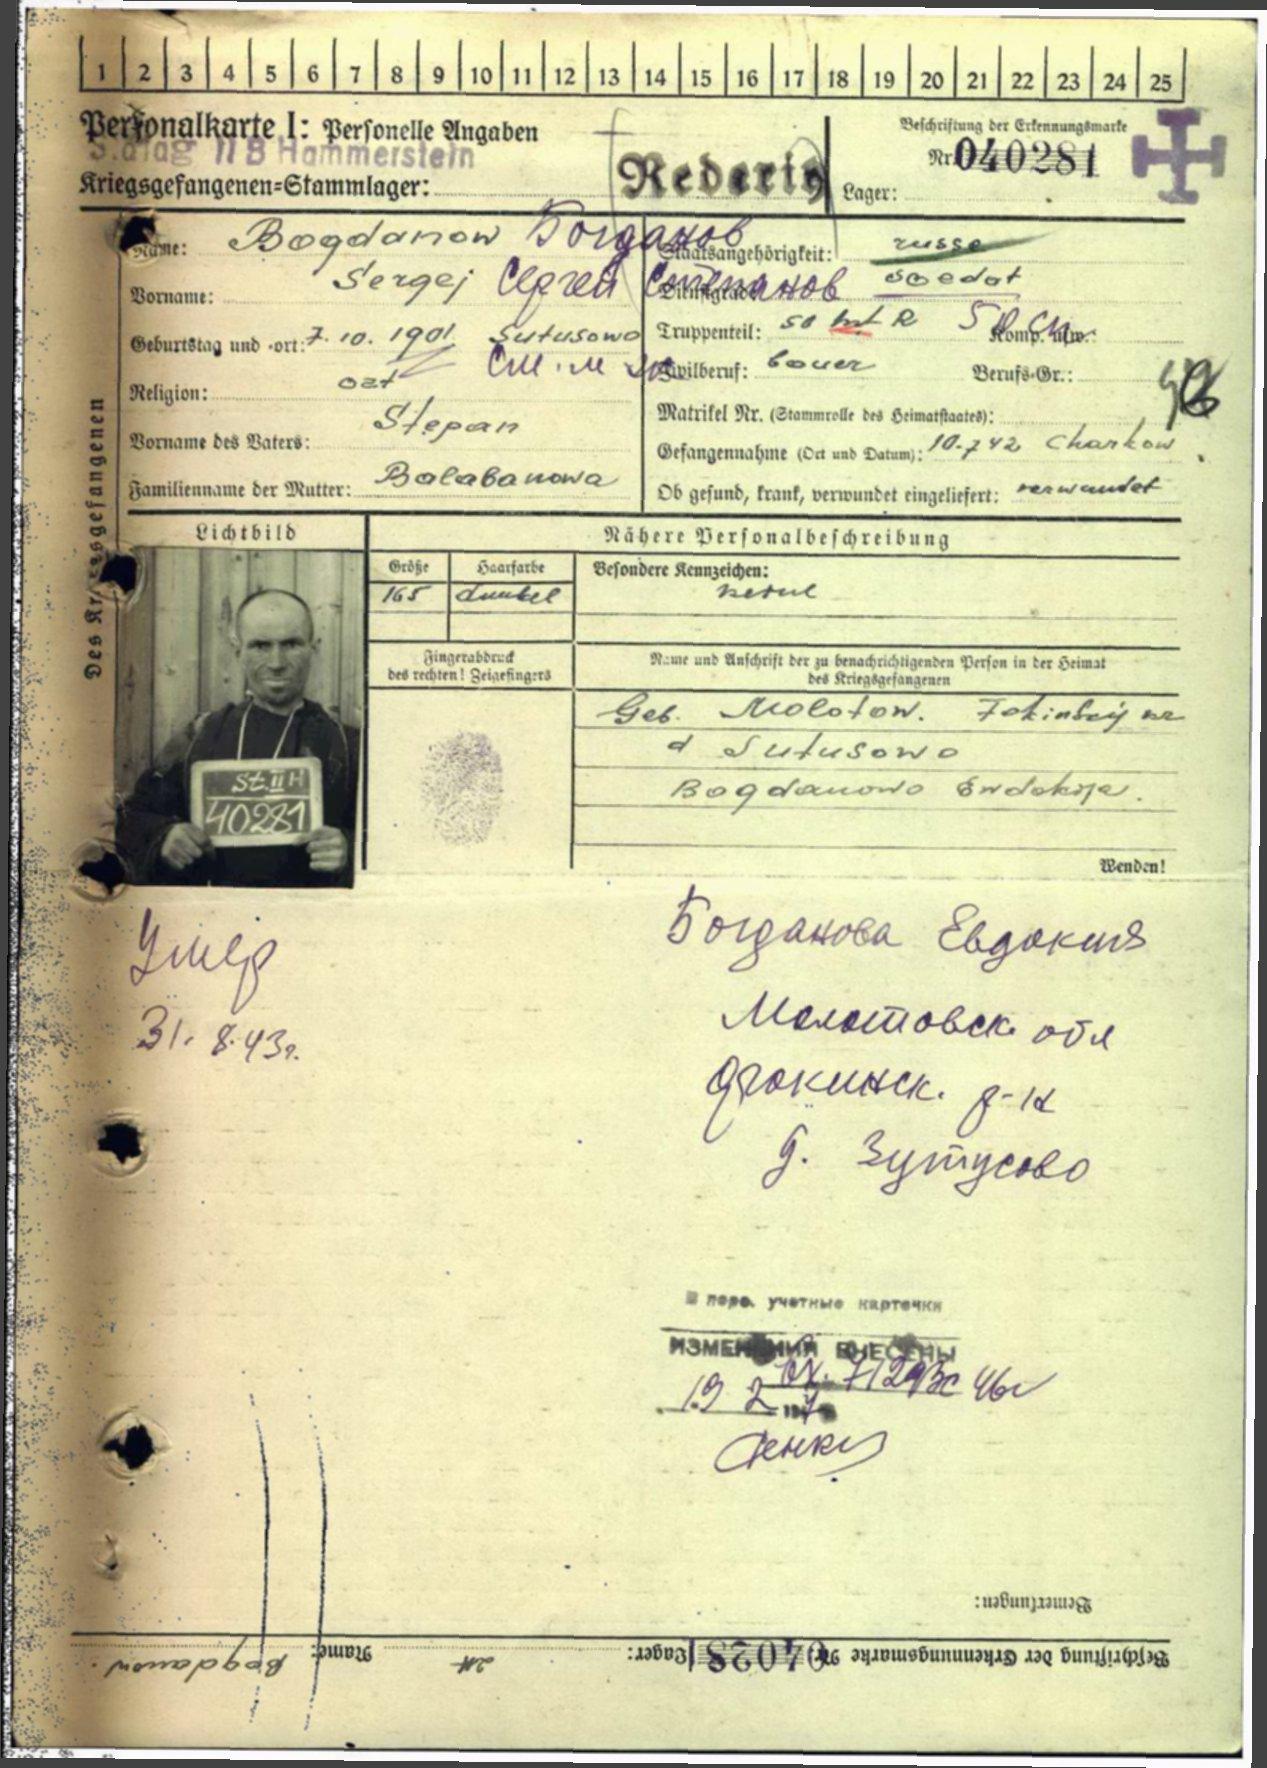 1 2 3 4 5 6 7 8 9 10 11 12 13 14 15 16 17 18 19 20 21 22 23 24 25
Personalkarte I: Personelle Angaben
Beschriftung der Erkennungsmarke
Stalag II B Hammerstein
Nr. 040281
Kriegsgefangenen-Stammlager:
Lager:
Des Kriegsgefangenen
Name: Bogdanow Богданов
Staatsangehörigkeit: russe
Vorname: Sergej Сергей Степанов
Dienstgrad: soedat
Geburtstag und -ort: 7.10.1901 Sutusowo
Truppenteil: 50 Inf R 50 сп
Komp. usw.:
Religion: oat
Zivilberuf: bauer
Berufs-Gr.:
Matrikel Nr. (Stammrolle des Heimatstaates):
Vorname des Vaters: Stepan
Gefangennahme (Ort und Datum): 10.7 42 Charkow
Familienname der Mutter: Balabanowa
Ob gesund, krank, verwundet eingeliefert: verwundet
Lichtbild
Nähere Personalbeschreibung
Größe
Haarfarbe
Besondere Kennzeichen:
165
dunkel
keine
Fingerabdruck
des rechten! Zeigefingers
Name und Anschrift der zu benachrichtigenden Person in der Heimat
des Kriegsgefangenen
Geb. Molotow.
d Sutusowo
Bogdanowo Ewdokija.
St. II H
40281
Wenden!
Умер
31. 8.43г.
Богданова Евдокия
Молотовск. обл
р-н
д. Зутусово
В перс. учетные карточки
ИЗМЕНЕНИЯ ВНЕСЕНЫ
19 2
Bemerkungen:
Beschriftung der Erkennungsmarke Nr. 04028
Lager:
Name: Bogdanow.